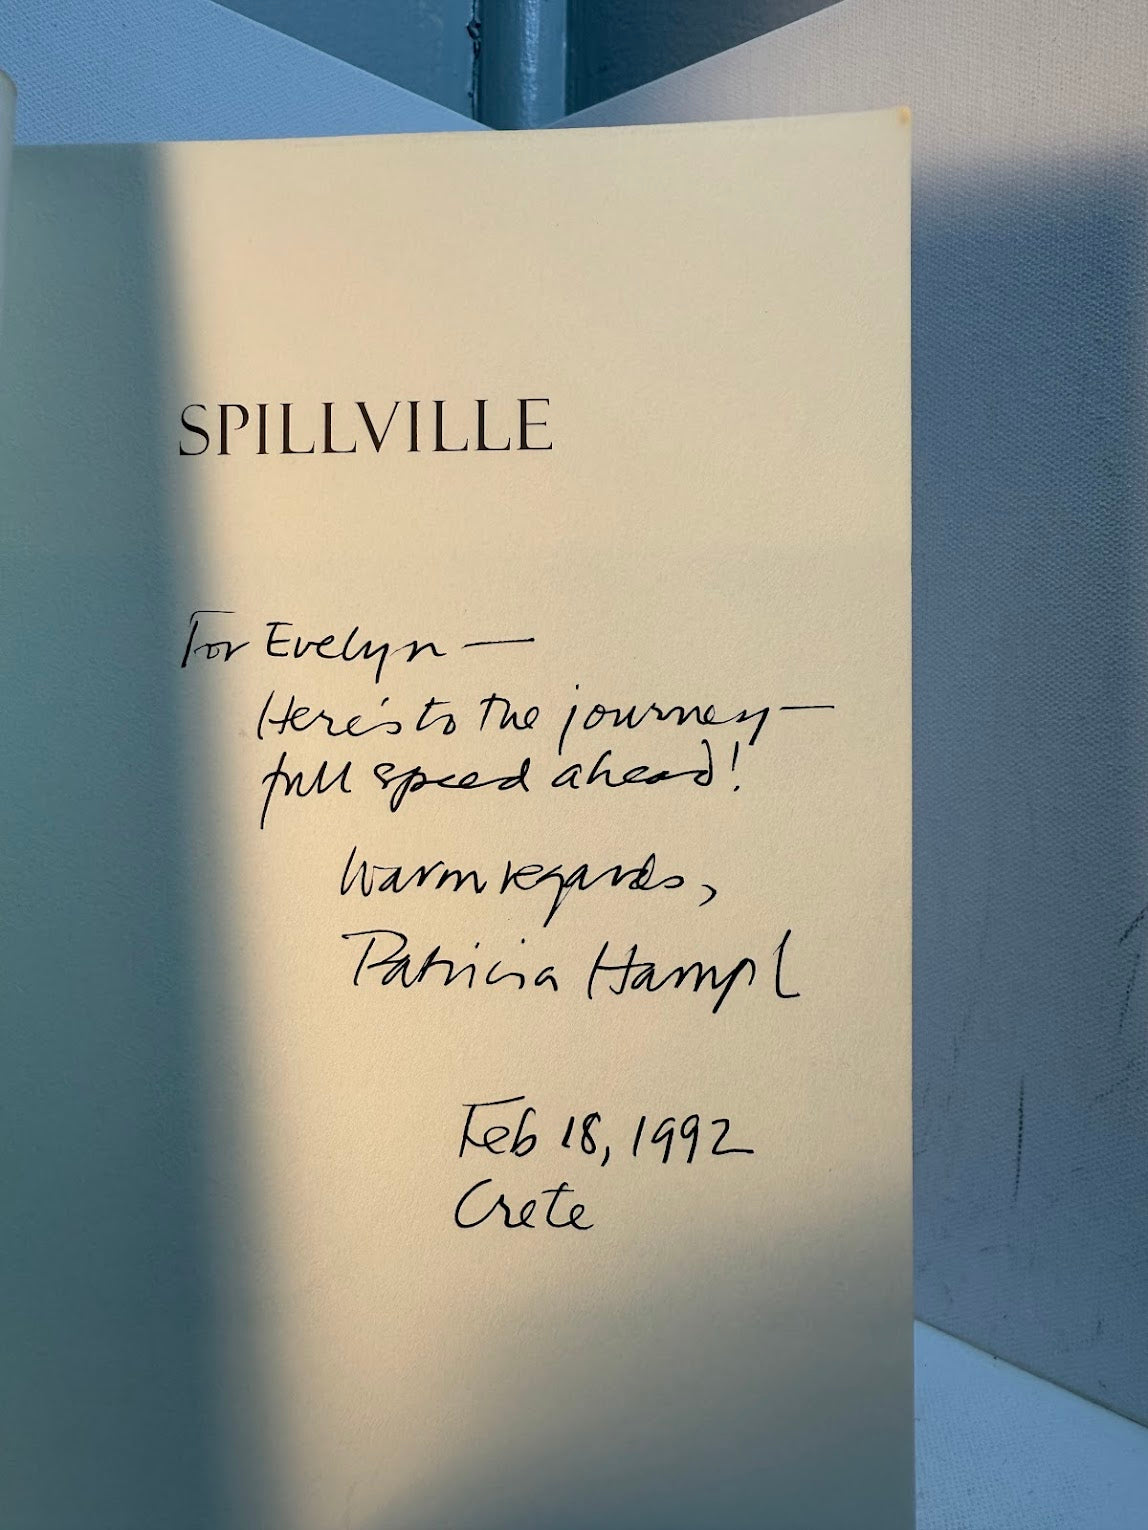 SPILLVILLE
For Evelyn —
Here's to the journey —
full speed ahead!
Warm regards,
Patricia Hampl
Feb 18, 1992
Crete